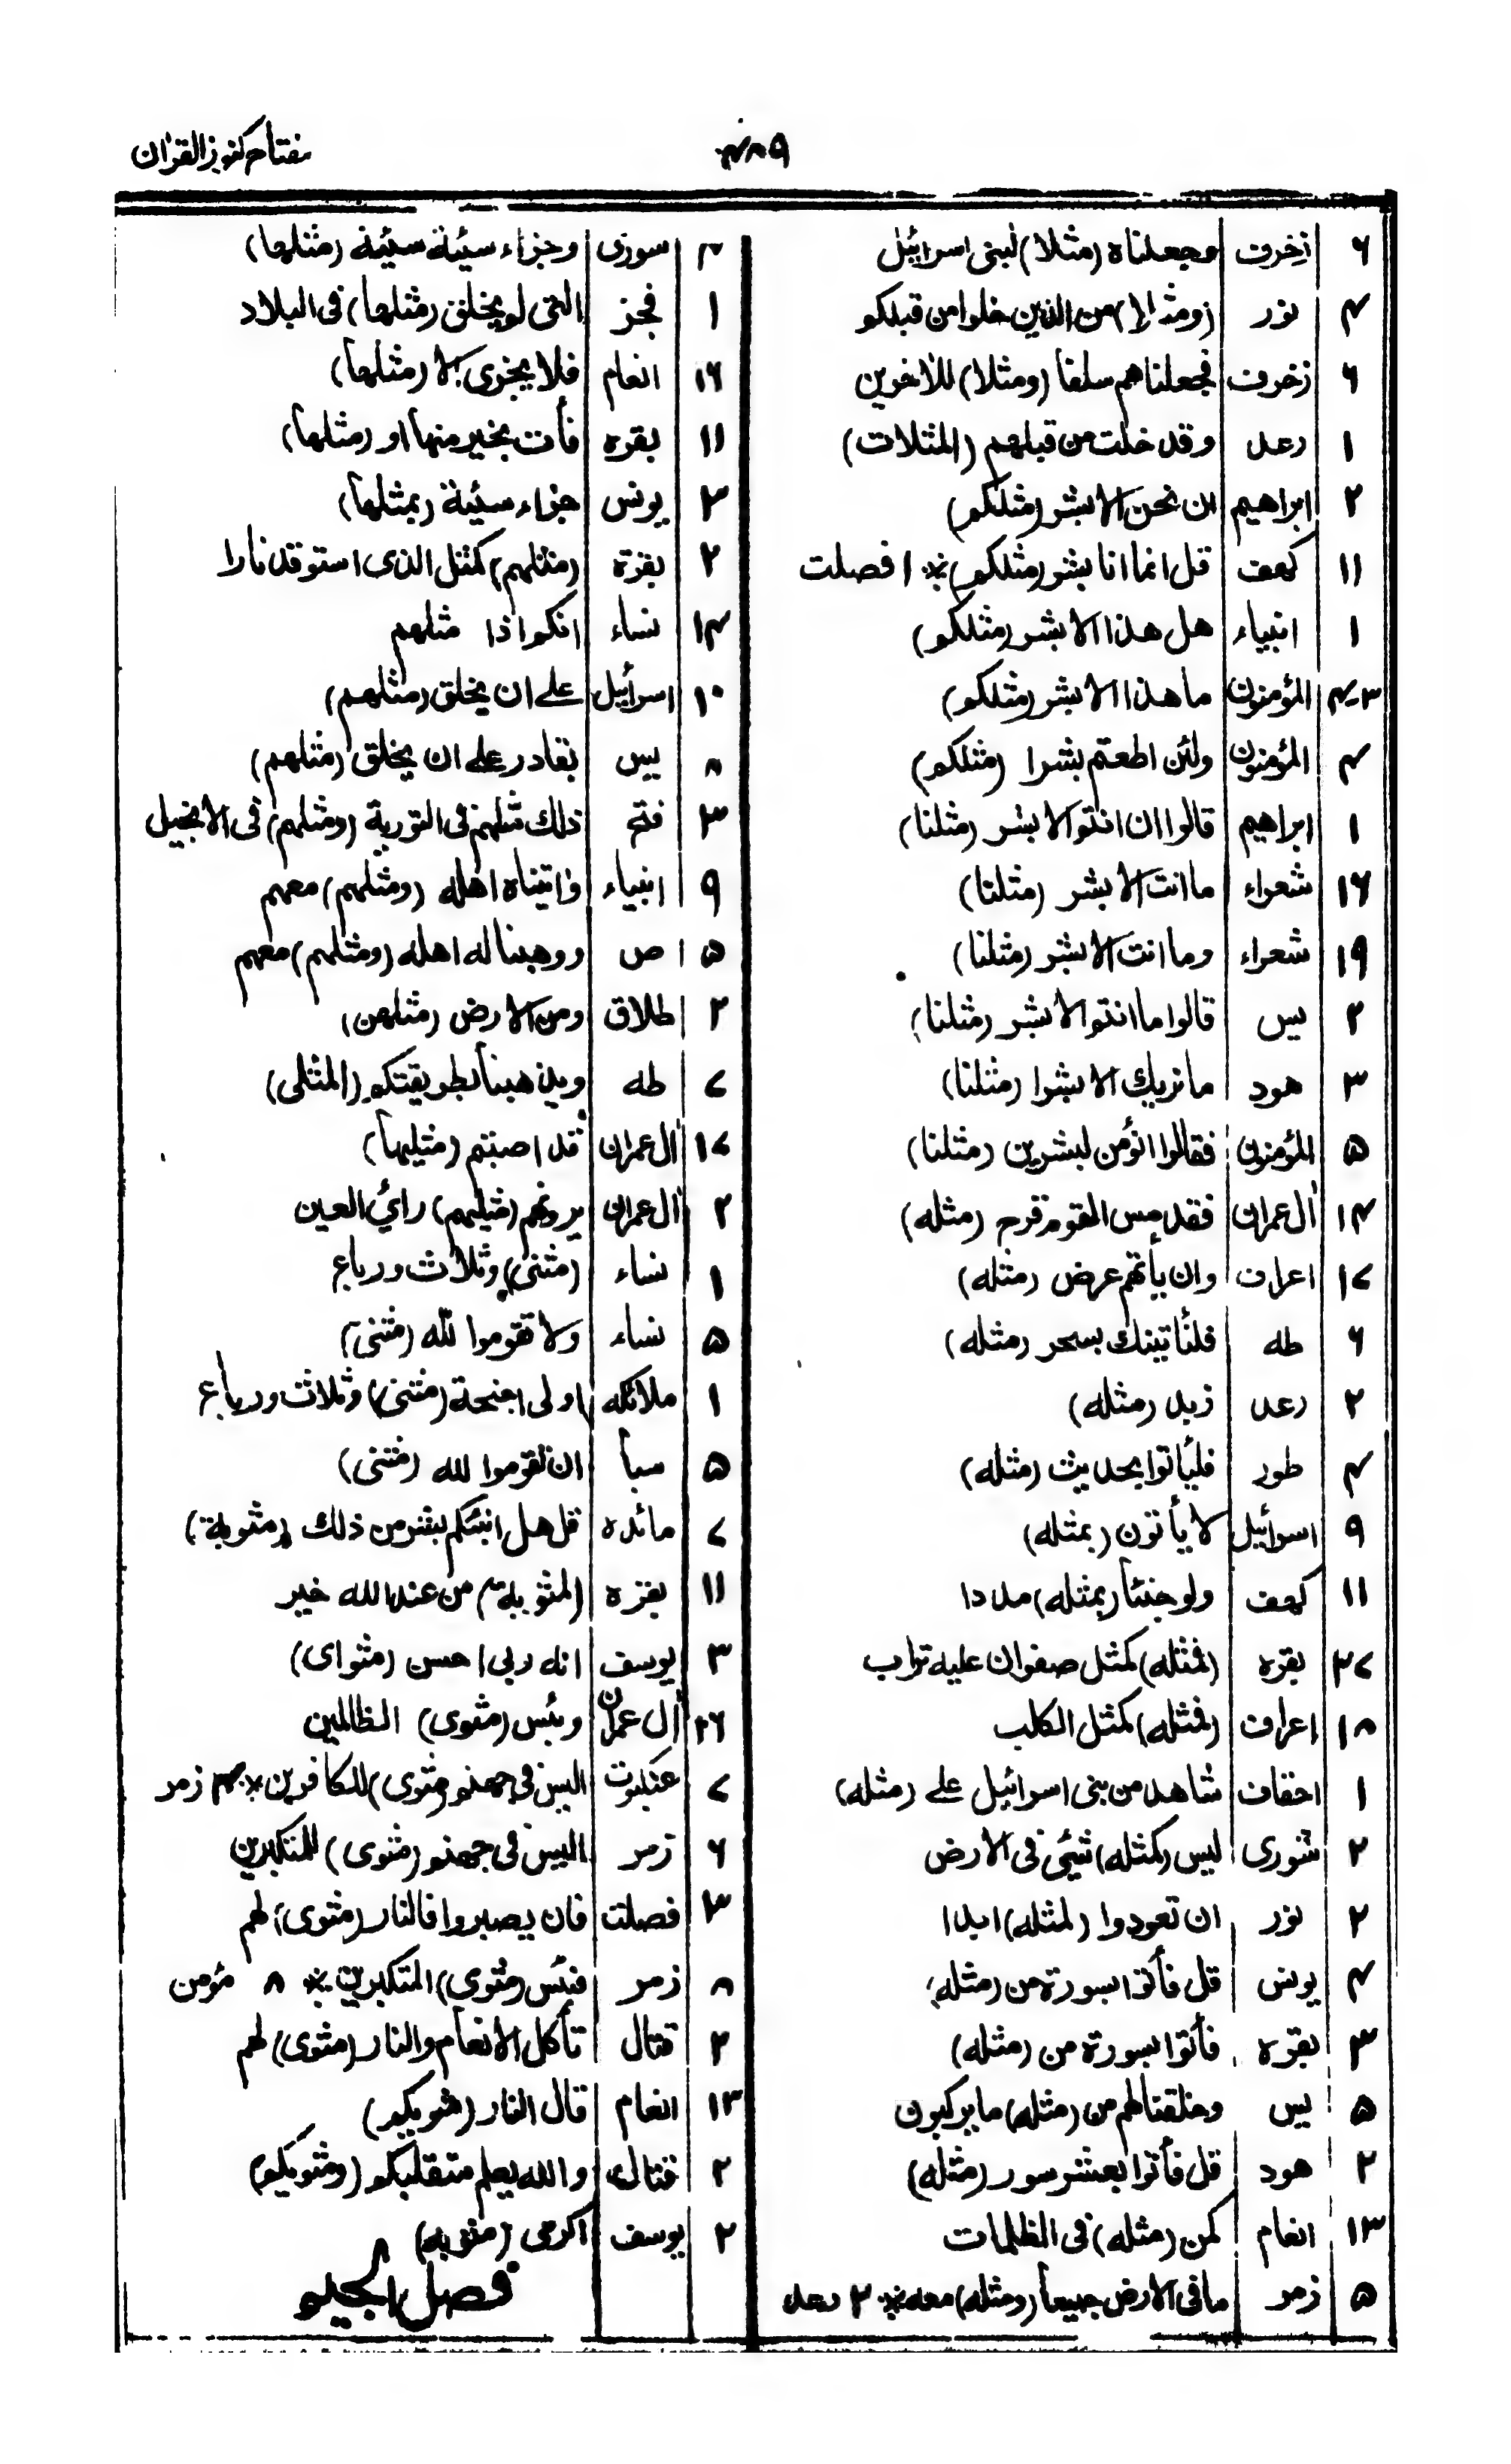 ۴۸۹
مفتاح كنوز القرآن
۶ زخرف وجعلناه (مثلا) لبنى اسرائيل
۴ نور (ومثلا) من الذين خلوا من قبلكم
۶ زخرف فجعلناهم سلفا (ومثلا) للآخرين
۱ رعد وقد خلت من قبلهم (المثلات)
۲ ابراهيم ان نحن الا بشر (مثلكم)
۱۱ كهف قل انما انا بشر (مثلكم) * ۱ فصلت
۱ انبياء هل هذا الا بشر (مثلكم)
۳-۴ المؤمنون ما هذا الا بشر (مثلكم)
۴ المؤمنون ولئن اطعتم بشرا (مثلكم)
۱ ابراهيم قالوا ان انتم الا بشر (مثلنا)
۱۶ شعراء ما انت الا بشر (مثلنا)
۱۹ شعراء وما انت الا بشر (مثلنا)
۲ يس قالوا ما انتم الا بشر (مثلنا)
۳ هود ما نريك الا بشرا (مثلنا)
۵ المؤمنون فقالوا انؤمن لبشرين (مثلنا)
۱۴ أل عمران فقد مس القوم قرح (مثله)
۱۷ اعراف وان يأتهم عرض (مثله)
۶ طه فلنأتينك بسحر (مثله)
۲ رعد زبد (مثله)
۴ طور فليأتوا بحديث (مثله)
۹ اسرائيل لا يأتون (بمثله)
۱۱ كهف ولو جئنا (بمثله) مددا
۳۷ بقره (فمثله) كمثل صفوان عليه تراب
۱۸ اعراف (فمثله) كمثل الكلب
۱ احقاف شاهد من بنى اسرائيل على (مثله)
۲ شورى ليس (كمثله) شئ فى الارض
۲ نور ان تعودوا (لمثله) ابدا
۴ يونس قل فأتوا بسورة من (مثله)
۳ بقره فأتوا بسورة من (مثله)
۵ يس وخلقنا لهم من (مثله) ما يركبون
۲ هود قل فأتوا بعشر سور (مثله)
۱۳ انعام كمن (مثله) فى الظلمات
۵ زمر ما فى الارض جميعا (ومثله) معه * ۲ رعد
۴ سورى وجزاء سيئة سيئة (مثلها)
۱ فجر التى لم يخلق (مثلها) فى البلاد
۱۶ انعام فلا يجزى الا (مثلها)
۱۱ بقره فأت بخير منها او (مثلها)
۳ يونس جزاء سيئة (بمثلها)
۲ بقرة (مثلهم) كمثل الذى استوقد نارا
۱۴ نساء انكم اذا مثلهم
۱۰ اسرائيل على ان يخلق (مثلهم)
۸ يس بقادر على ان يخلق (مثلهم)
۳ فتح ذلك مثلهم فى التورية (ومثلهم) فى الانجيل
۹ انبياء واتيناه اهله (ومثلهم) معهم
۵ ص ووهبنا له اهله (ومثلهم) معهم
۲ طلاق ومن الارض (مثلهن)
۷ طه ويذهبا بطريقتكم (المثلى)
۱۷ أل عمران قد اصبتم (مثليها)
۲ أل عمران يرونهم (مثليهم) رائ العين
۱ نساء (مثنى) وثلاث ورباع
۵ نساء ولا تقوموا لله (مثنى)
۱ ملائكه اولى اجنحة (مثنى) وثلاث ورباع
۵ سبأ ان تقوموا لله (مثنى)
۷ مائده قل هل انبئكم بشر من ذلك (مثوبة)
۱۱ بقره (لمثوبة) من عند الله خير
۳ يوسف انه ربى احسن (مثواى)
۱۶ أل عمران وبئس (مثوى) الظالمين
۷ عنكبوت اليس فى جهنم (مثوى) للكافرين * ۴ زمر
۶ زمر اليس فى جهنم (مثوى) للمتكبرين
۳ فصلت فان يصبروا فالنار (مثوى) لهم
۸ زمر فبئس (مثوى) المتكبرين * ۸ مؤمن
۲ قتال تأكل الانعام والنار (مثوى) لهم
۱۳ انعام قال النار (مثويكم)
۲ قتال والله يعلم متقلبكم (ومثويكم)
۲ يوسف اكرمى (مثويه)
فصل الجيم